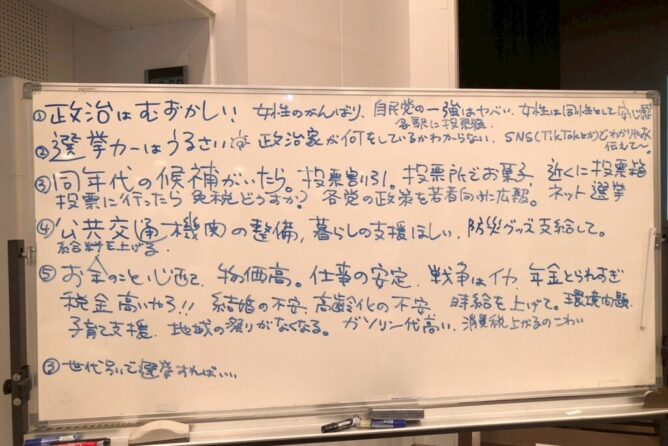 ①政治はむずかしい! 女性のがんばり、自民党の一強はヤバい、女性は同性として安心感
各駅に投票箱
②選挙カーはうるさい 政治家が何をしているかわからない、SNS(TikTokとか)でわかりやすく
伝えて〜。
③同年代の候補がいたら。投票割引。投票所でお菓子 近くに投票箱
投票に行ったら免税どうすか? 各党の政策を若者向けに広報。ネット選挙
④公共交通機関の整備、暮らしの支援ほしい、防災グッズ支給して。
給料を上げる
⑤お金のこと心配で、物価高。仕事の安定、戦争はイカ、年金とられすぎ
税金高いやろ!! 結婚の不安、高齢化の不安 時給を上げて。環境問題、
子育て支援、地域の祭りがなくなる。ガソリン代高い、消費税上がるのこわい
③世代別で選挙すればいい